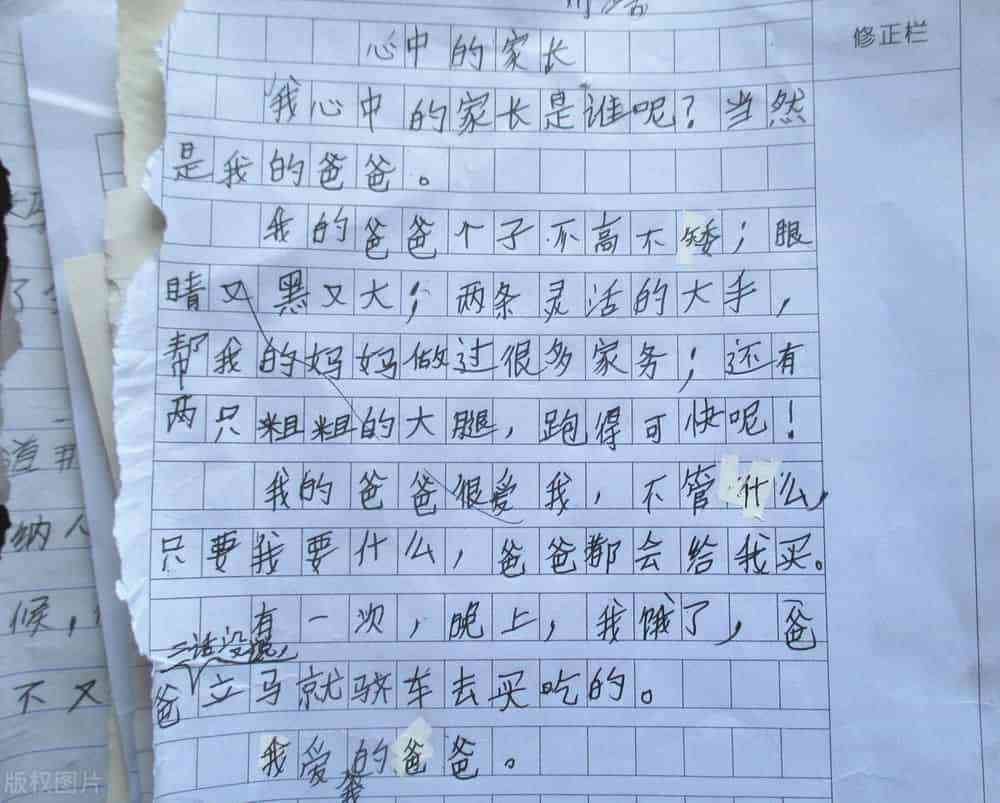 心中的家长
修正栏
我心中的家长是谁呢？当然
是我的爸爸。
我的爸爸个子不高不矮；眼
睛又黑又大；两条灵活的大手，
帮我的妈妈做过很多家务；还有
两只粗粗的大腿，跑得可快呢！
我的爸爸很爱我，不管什么，
只要我要什么，爸爸都会给我买。
有一次，晚上，我饿了，爸
二话没说，
爸立马就骑车去买吃的。
我爱的爸爸。
我
纳人
候，
不又
版权图片